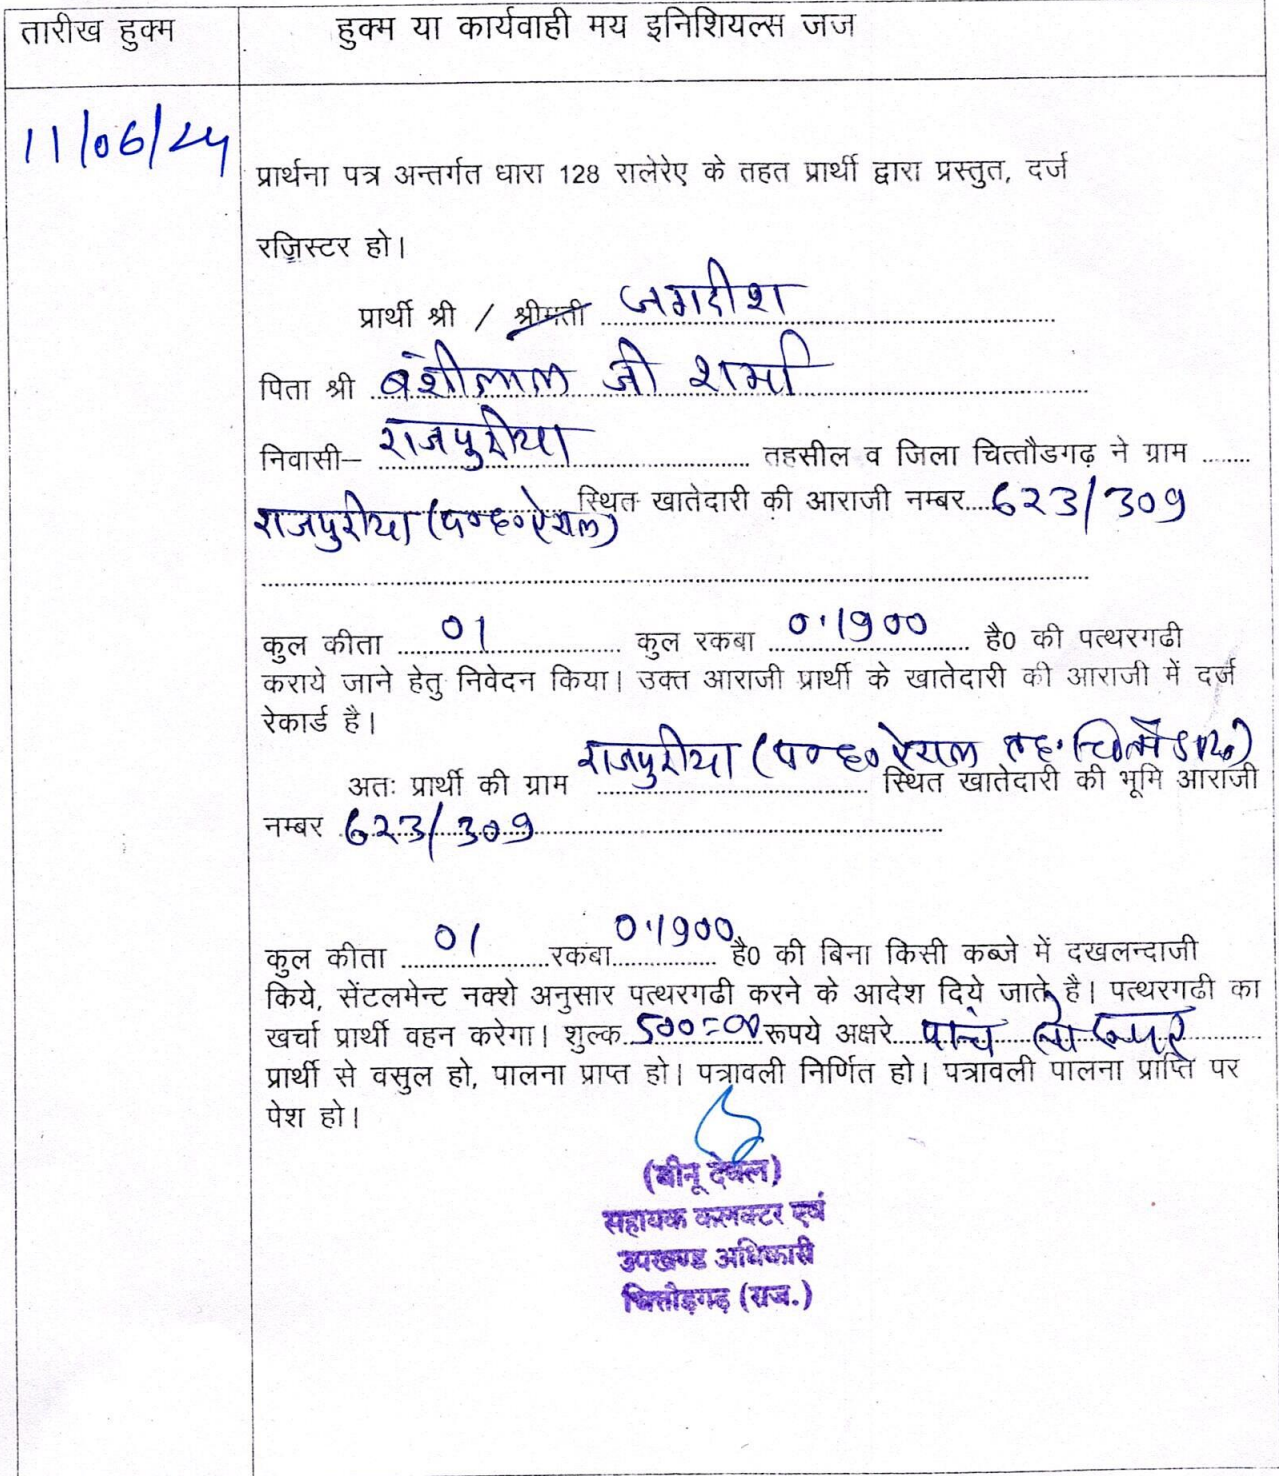 तारीख हुक्म
हुक्म या कार्यवाही मय इनिशियल्स जज
11/06/24
प्रार्थना पत्र अन्तर्गत धारा 128 रालेरेए के तहत प्रार्थी द्वारा प्रस्तुत, दर्ज
रजिस्टर हो।
प्रार्थी श्री / श्रीमती जगदीश
पिता श्री बंशीलाल जी शर्मा
निवासी– राजपुरीया तहसील व जिला चित्तौडगढ़ ने ग्राम ........
राजपुरीया (प०ह०ऐराल) स्थित खातेदारी की आराजी नम्बर....623/309
कुल कीता 01 कुल रकबा 0.1900 है0 की पत्थरगढी
कराये जाने हेतु निवेदन किया। उक्त आराजी प्रार्थी के खातेदारी की आराजी में दर्ज
रेकार्ड है।
अतः प्रार्थी की ग्राम राजपुरीया (प०ह०ऐराल तह. चित्तौडगढ़) स्थित खातेदारी की भूमि आराजी
नम्बर 623/309
कुल कीता 01 रकबा 0.1900 है0 की बिना किसी कब्जे में दखलन्दाजी
किये, सेंटलमेन्ट नक्शे अनुसार पत्थरगढी करने के आदेश दिये जाते है। पत्थरगढी का
खर्चा प्रार्थी वहन करेगा। शुल्क 500=00 रूपये अक्षरे पान्च सो रूपए
प्रार्थी से वसुल हो, पालना प्राप्त हो। पत्रावली निर्णित हो। पत्रावली पालना प्राप्ति पर
पेश हो।
(बीनू देवल)
सहायक कलक्टर एवं
उपखण्ड अधिकारी
चित्तौड़गढ़ (राज.)